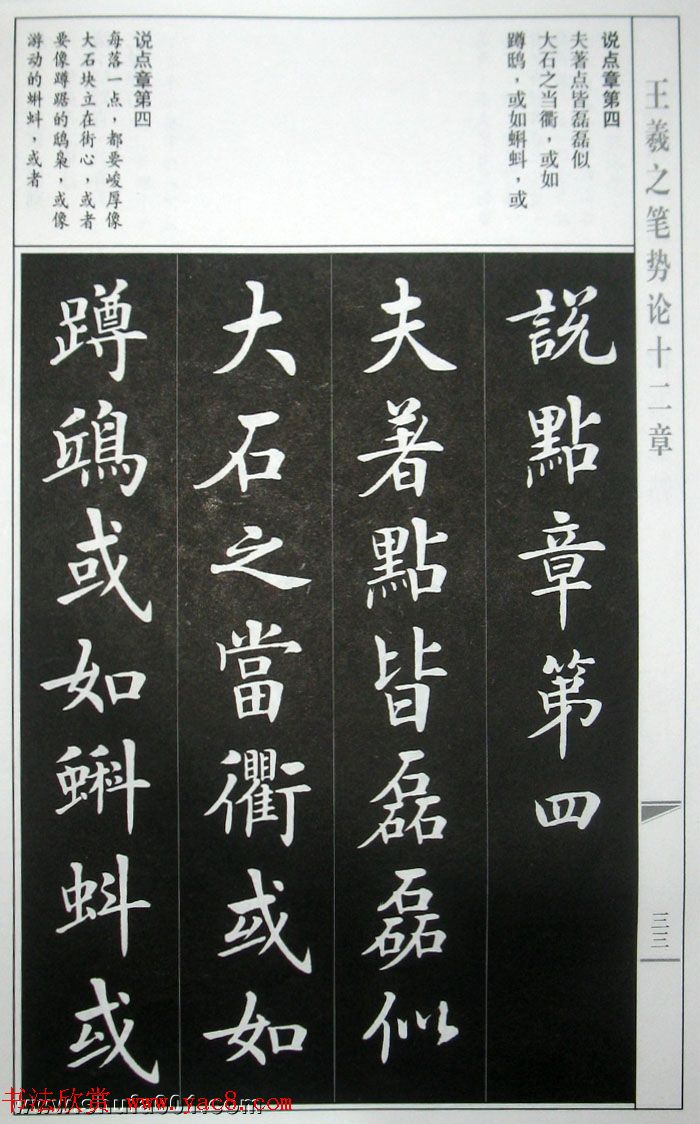 王羲之笔势论十二章
三三
说点章第四
夫著点皆磊磊似
大石之当衢，或如
蹲鸱，或如蝌蚪，或
说点章第四
每落一点，都要峻厚像
大石块立在街心，或者
要像蹲踞的鸱枭，或像
游动的蝌蚪，或者
說點章第四
夫著點皆磊磊似
大石之當衢或如
蹲鴟或如蝌蚪或
书法欣赏 www.yac8.com